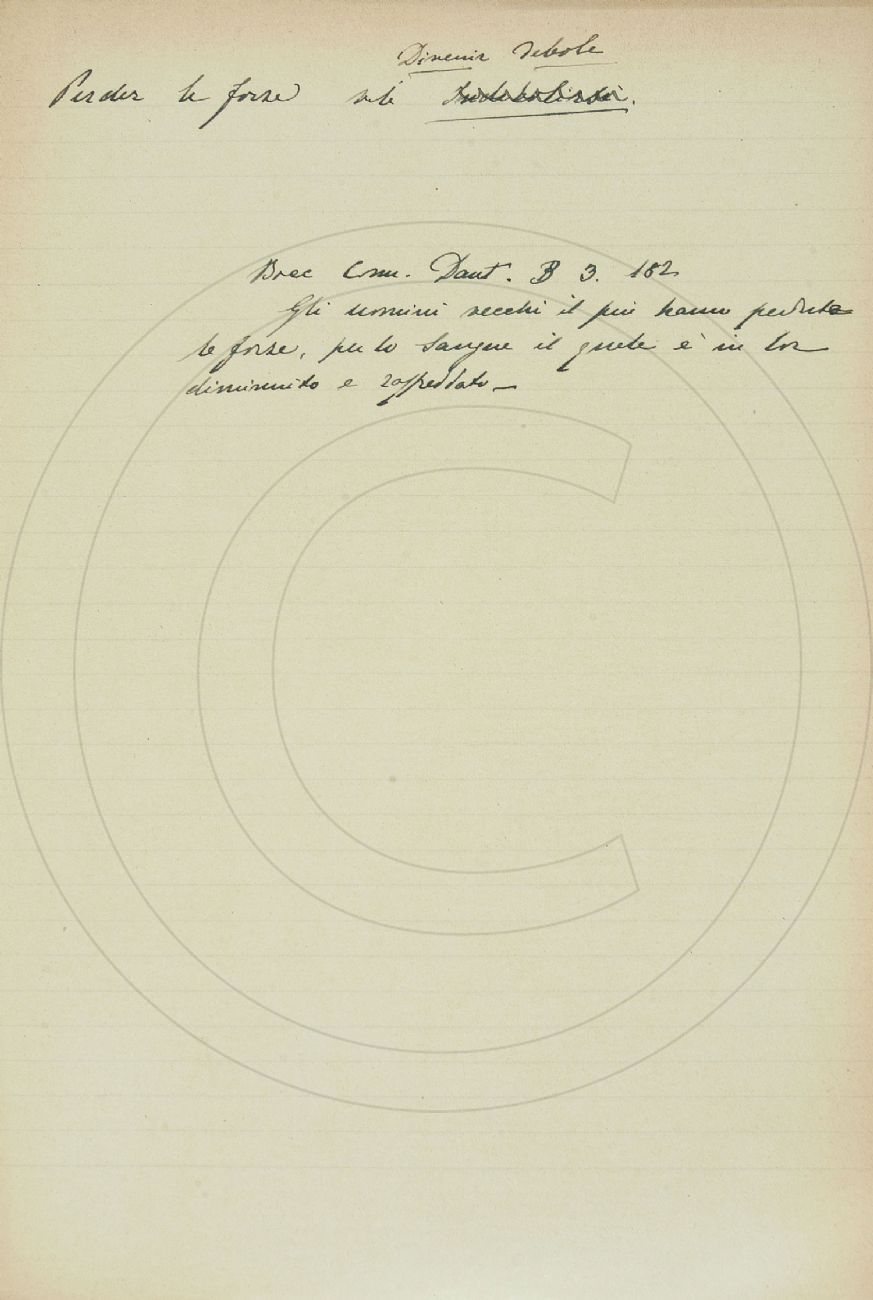 Divenir debole
Perder le forze vale Indebolirsi.
Bocc Com. Dant. B 3. 182
Gli uomini vecchi il più hanno perdute
le forze, per lo sangue il quale è in lor
diminuito e raffreddato —